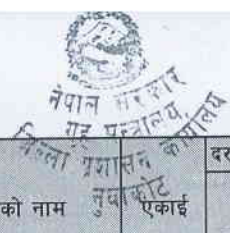 नेपाल सरकार
गृह मन्त्रालय
जिल्ला प्रशासन कार्यालय
नुवाकोट
को नाम
एकाई
दर